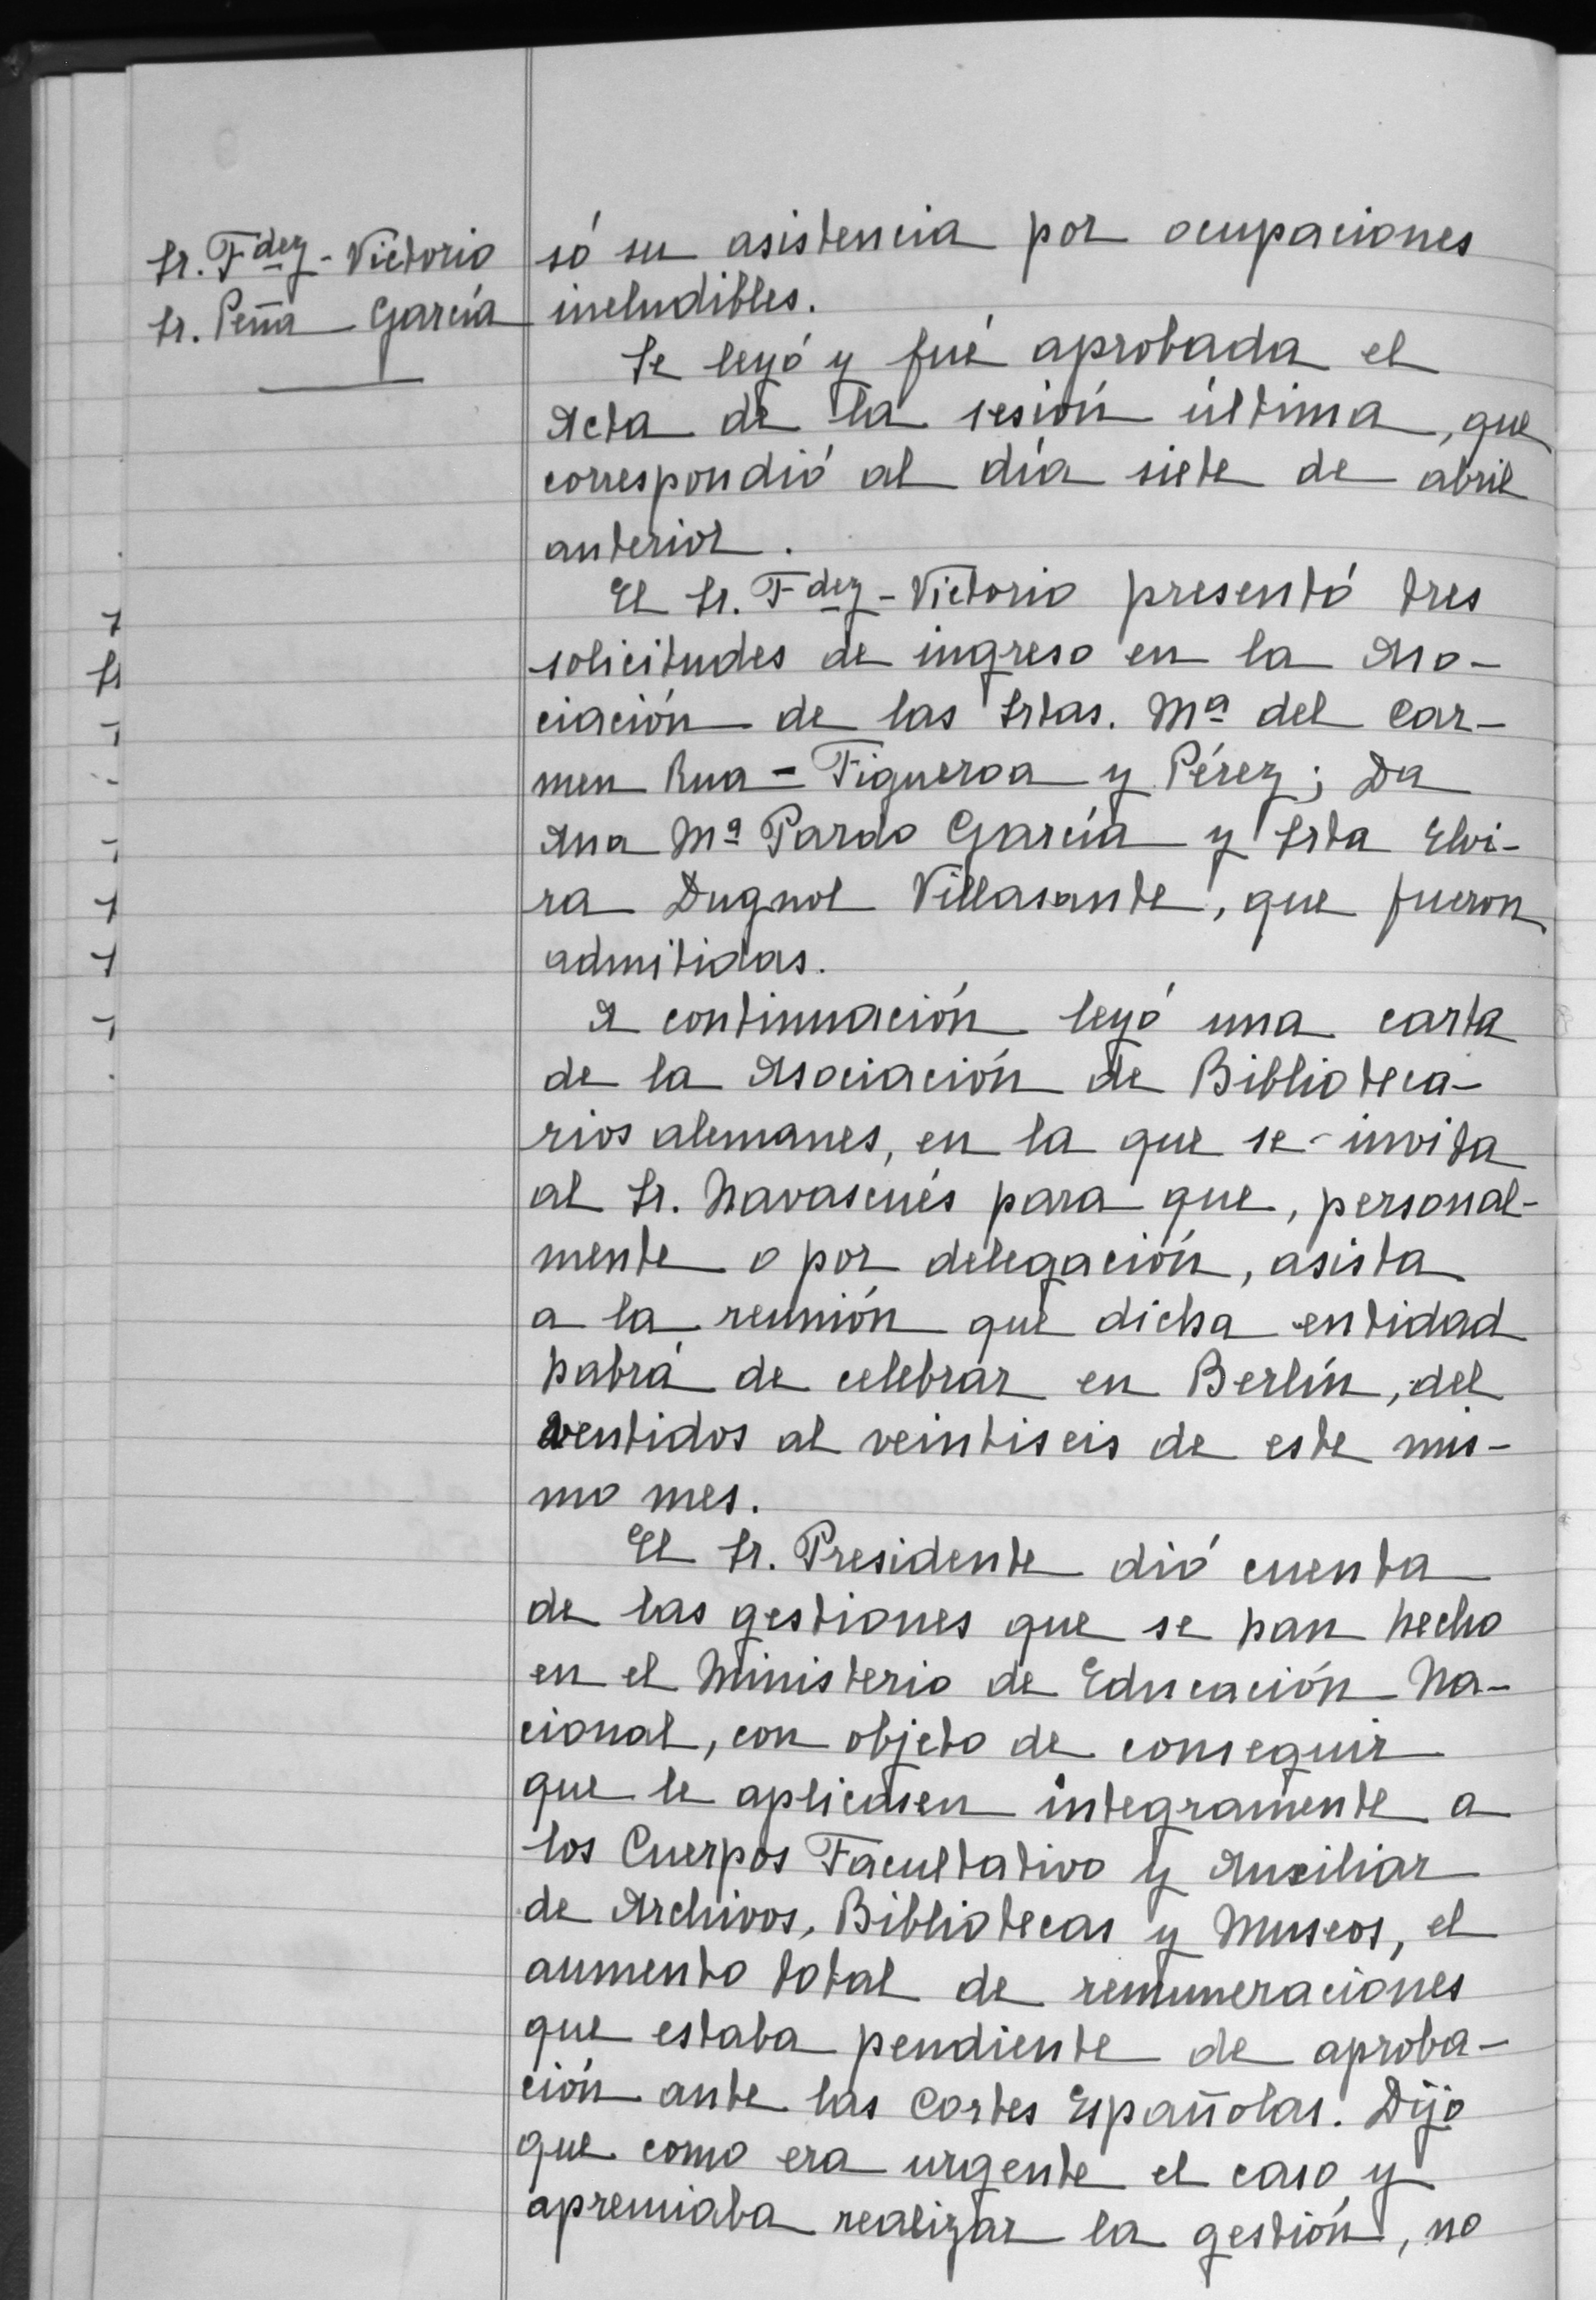 Sr. Fdez-Victorio
Sr. Peña García
só su asistencia por ocupaciones
ineludibles.
Se leyó y fué aprobada el
Acta de la sesión última, que
correspondió al día siete de abril
anterior.
El Sr. Fdez-Victorio presentó tres
solicitudes de ingreso en la Aso-
ciación de las Srtas. Mª del Car-
men Rua-Figueroa y Pérez; Da
Ana Mª Pardo García y Srta Elvi-
ra Dugnol Villasante, que fueron
admitidas.
A continuación leyó una carta
de la Asociación de Biblioteca-
rios alemanes, en la que se invita
al Sr. Navascués para que, personal-
mente o por delegación, asista
a la reunión que dicha entidad
habrá de celebrar en Berlín, del
ventidos al veintiseis de este mis-
mo mes.
El Sr. Presidente dió cuenta
de las gestiones que se han hecho
en el Ministerio de Educación Na-
cional, con objeto de conseguir
que le aplicasen integramente a
los Cuerpos Facultativo y Auxiliar
de Archivos, Bibliotecas y Museos, el
aumento total de remuneraciones
que estaba pendiente de aproba-
ción ante las Cortes Españolas. Dijo
que como era urgente el caso y
apremiaba realizar la gestión, no